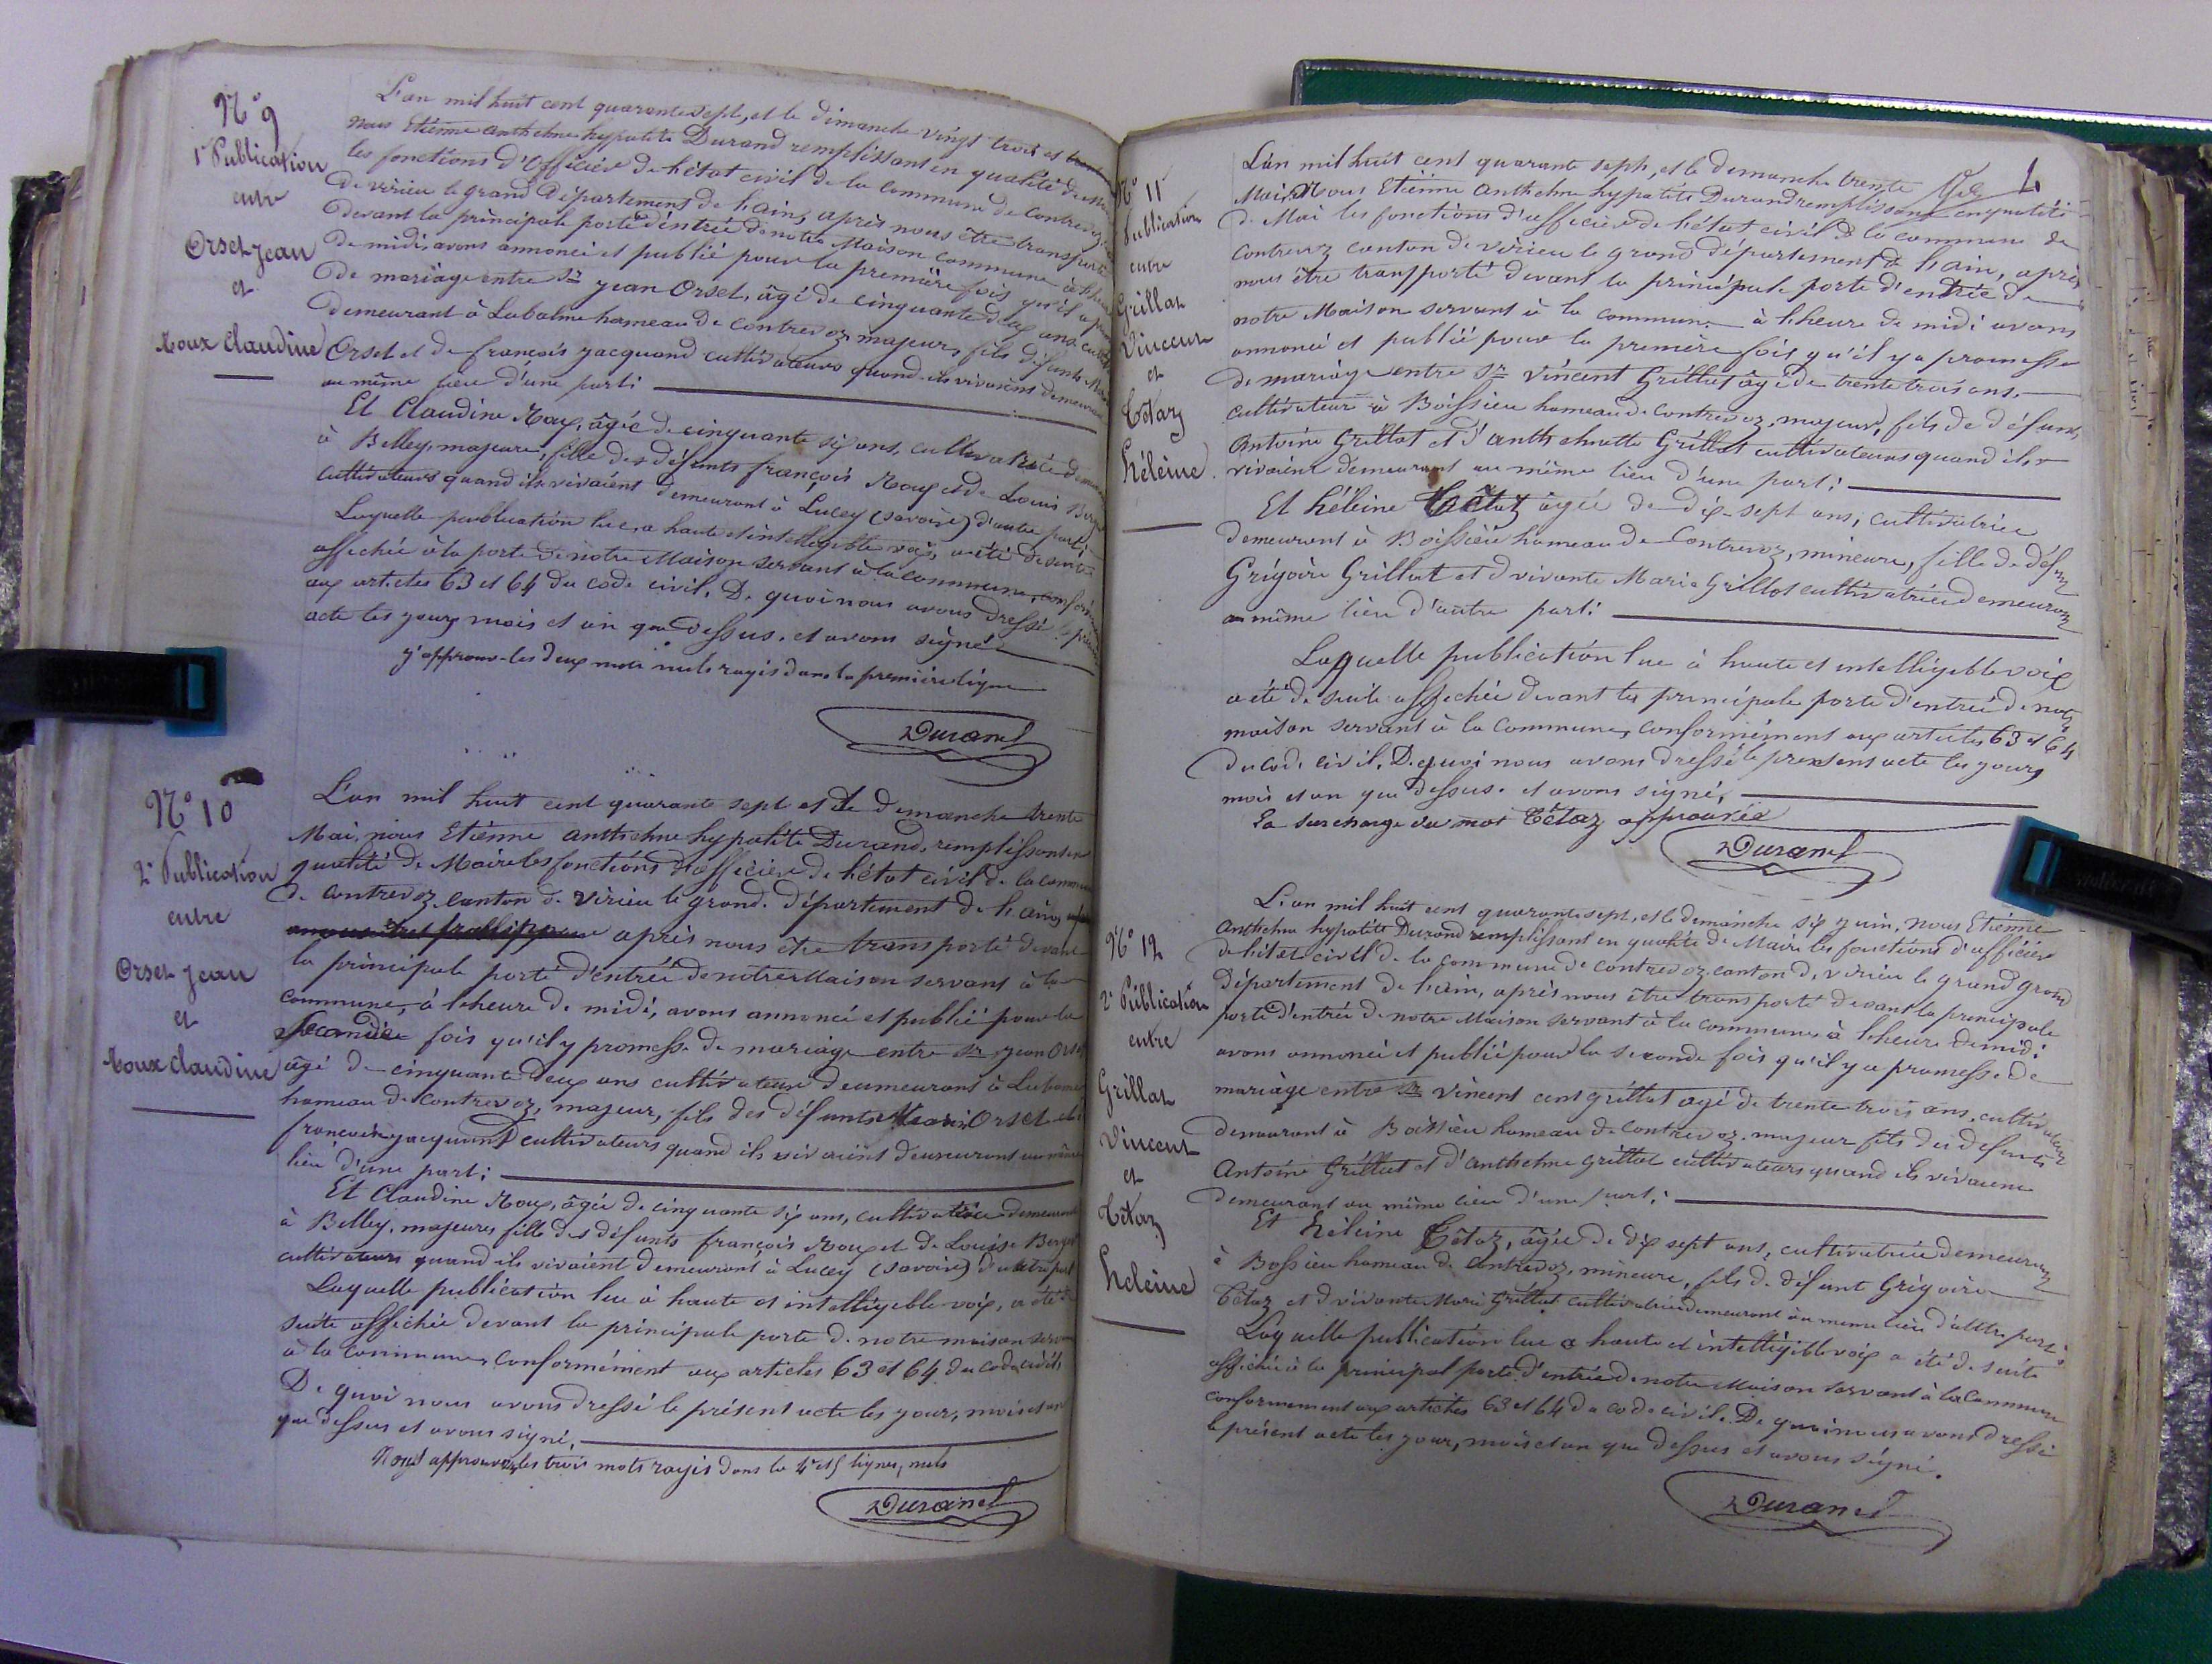 N° 9
1e Publication
entre
Orset Jean
et
Roux Claudine
L'an mil huit cent quarante sept, et le dimanche vingt trois et
Nous Etienne anthelme hypolite Durand remplissant en qualité de
les fonctions d'Officier de l'état civil de la commune de Contrevoz
de virieu le grand Département de l'ain, après nous être transporté
devant la principale porte d'entrée de notre Maison commune à l'heure
de midi, avons annoncé et publié pour la première fois qu'il a
de mariage entre Sr Jean Orset, âgé de cinquante deux ans
demeurant à Labalme hameau de Contrevoz, majeur, fils défunts
Orset et de françois jacquand cultivateurs quand ils vivaient demeurant
au même lieu d'une part;
Et Claudine Roux, âgée de cinquante six ans, cultivatrice
à Belley, majeure, fille des défunts françois Roux et de Louise
cultivateurs quand ils vivaient demeurant à Lucey (savoie) d'autre part;
Laquelle publication lue, a haute et intelligible voix, a été de suite
affichée à la porte de notre Maison servant à la commune,
aux articles 63 et 64 du code civil. De quoi nous avons dressé le
acte les jours mois et an que dessus, et avons signé
j'approuve les deux mots nuls rayés dans la première ligne
Durand
N° 10
2e Publication
entre
Orset Jean
et
Roux Claudine
L'an mil huit cent quarante sept et le dimanche trente
Mai, nous Etienne anthelme hypolite Durand, remplissant en
qualité de Maire les fonctions d'officier de l'état civil de la commune
de Contrevoz canton de virieu le grand. département de l'ain,
après nous être transporté devant
la principale porte d'entrée de notre Maison servant à la
commune, à l'heure de midi, avons annoncé et publié pour la
Seconde fois qu'il y promesse de mariage entre Sr Jean Orset
âgé de cinquante deux ans cultivateur deumeurant à
hameau de Contrevoz, majeur, fils des défunts Orset
françois jacquand cultivateurs quand ils vivaient deumeurant au même
lieu d'une part;
Et Claudine Roux, âgée de cinquante six ans, cultivatrice demeurant
à Belley, majeure, fille des défunts françois Roux et de Louise
cultivateurs quand ils vivaient demeurant à Lucey (savoie) d'autre part
Laquelle publication lue à haute et intelligible voix, a été de
suite affichée devant la principale porte de notre maison
à la commune, conformément aux articles 63 et 64 du code civil.
De quoi nous avons dressé le présent acte les jour, mois et an
que dessus et avons signé,
approuvé les trois mots rayés dans la 4e et 5 lignes, nuls
Durand
N° 11
Publication
entre
Grillat
Vincent
et
Tétaz
héleine
L'an mil huit cent quarante sept, et le demanche trente
Mai, Nous Etienne anthelme hypolite Durand remplissant en qualité
de Mai les fonctions d'officier de l'état civil de la commune de
Contrevoz canton de virieu le grand département de l'ain, après
nous être transporté devant la principale porte d'entrée de
notre Maison servant à la commune à l'heure de midi avons
annoncé et publié pour la première fois qu'il y a promesse
de mariage entre Sr Vincent Grillat âgé de trente trois ans,
cultivateur à Boissieu hameau de Contrevoz, majeur, fils de défunts
Antoine Grillat et d'anthelmette Grillat cultivateurs quand ils
vivaient demeurant au même lieu d'une part;
Et héleine Tétaz âgée de dix-sept ans, cultivatrice
demeurant à Boissieu hameau de Contrevoz, mineure, fille de défunt
Grégoire Grillat et d vivante Marie Grillot cultivatrice demeurant
au même lieu d'autre part;
Laquelle publication lue à haute et intelligible voix
a été de suite affichée devant la principale porte d'entrée de notre
maison servant à la commune, conformément aux articles 63 et 64
du code civil. De quoi nous avons dressé le présent acte les jours
mois et an que dessus. et avons signé,
La surcharge du mot Tétaz approuvée
Durand
N° 12
2e Publication
entre
Grillat
Vincent
et
Tétaz
heleine
L'an mil huit cent quarante sept, et le demanche six juin, nous Etienne
Anthelme hypolite Durand remplissant en qualité de Maire les fonctions d'officier
de l'état civil de la commune de Contrevoz canton de virieu le grand grand
Département de l'ain, après nous être transporté devant la principale
porte d'entrée de notre Maison servant à la commune, à l'heure de midi
avons annoncé et publié pour la seconde fois qu'il y a promesse de
mariage entre Sr Vincent cent grillat agé de trente trois ans, cultivateur
demeurant à Boissieu hameau de Contrevoz, majeur fils des defunts
Antoine Grillat et d'anthelme grillat cultivateurs quand ils vivaient
demeurant au même lieu d'une part;
Et héleine Tétaz, âgée de dix sept ans, cultivatrice demeurant
à Bossieu hameau de Contrevoz, mineure, fils de défunt Grégoire
Tétaz et d vivante Marie Grillat cultivatrice demeurant au même lieu d'autre part;
Laquelle publication lue a haute et intelligible voix a été de suite
affichée à la principal porte d'entrée de notre Maison servant à la Commune
conformement aux articles 63 et 64 du code civil. De quoi nous avons dressé
le présent acte les jour, mois et an que dessus et avons signé.
Durand